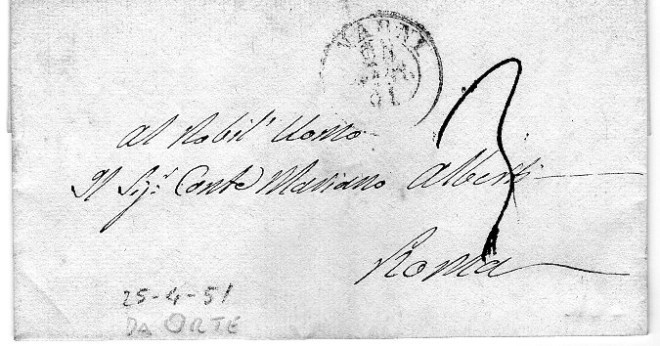 NARNI
3
Al Nobil' Uomo
Il Sig.r Conte Mariano Alberti
Roma
25-4-51
DA ORTE